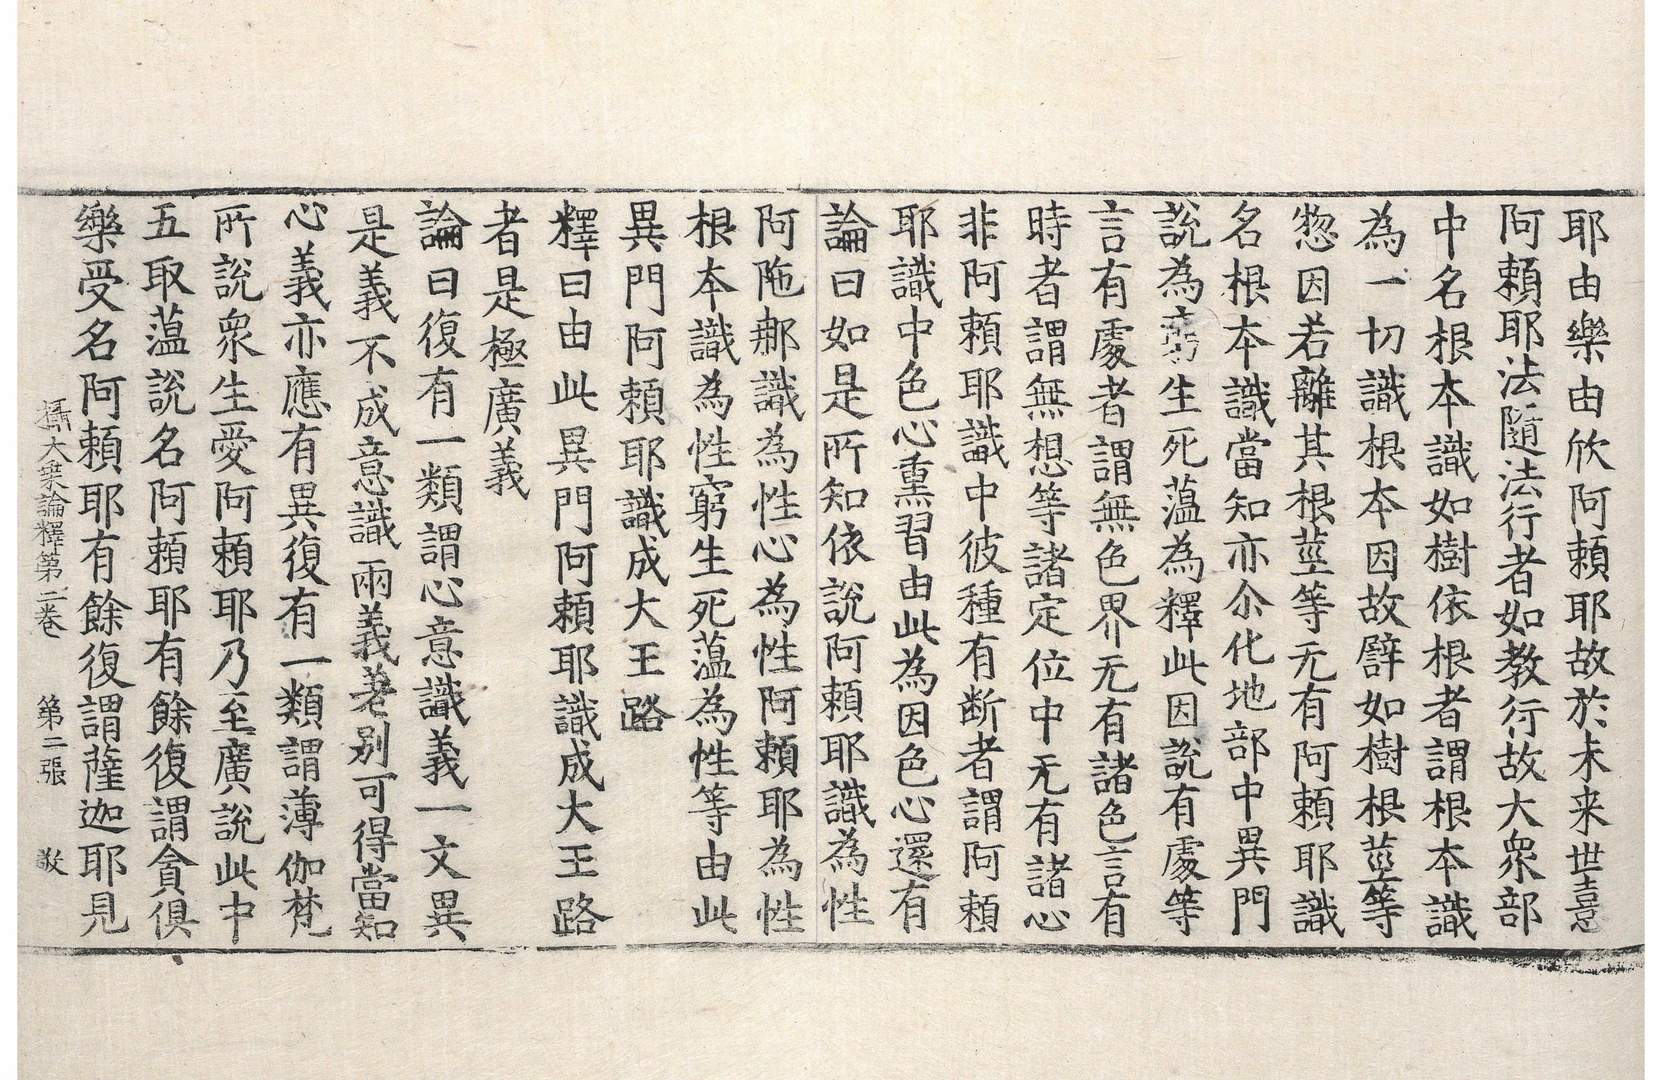 耶由樂由欣阿賴耶故於未来世憙
阿賴耶法隨法行者如教行故大衆部
中名根本識如樹依根者謂根本識
為一切識根本因故譬如樹根莖等
惣因若離其根莖等无有阿賴耶識
名根本識當知亦尒化地部中異門
說為窮生死薀為釋此因說有處等
言有處者謂無色界无有諸色言有
時者謂無想等諸定位中无有諸心
非阿賴耶識中彼種有断者謂阿賴
耶識中色心熏習由此為因色心還有
論曰如是所知依說阿賴耶識為性
阿陁那識為性心為性阿賴耶為性
根本識為性窮生死薀為性等由此
異門阿賴耶識成大王路
釋曰由此異門阿賴耶識成大王路
者是極廣義
論曰復有一類謂心意識義一文異
是義不成意識兩義差别可得當知
心義亦應有異復有一類謂薄伽梵
所說衆生愛阿賴耶乃至廣說此中
五取薀說名阿賴耶有餘復謂貪俱
樂受名阿賴耶有餘復謂薩迦耶見
攝大乗論釋第二卷　第二張　敬